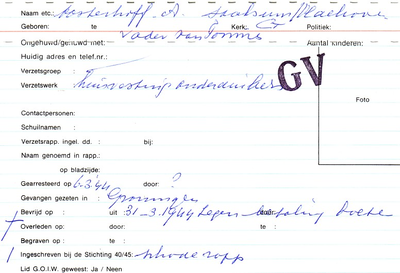 Naam etc.: Oosterhoff, A. Saaksum/
Geboren: te Kerk. Politiek:
Vader van Tonnis
Ongehuwd/gehuwd met: Aantal kinderen:
Huidig adres en telef.nr.:
Verzetsgroep :
GV
Verzetswerk : huisvesting onderduikers
Foto
Contactpersonen:
Schuilnamen :
Verzetsrapp. ingel. dd. : bij:
Naam genoemd in rapp.:
op bladzijde:
Gearresteerd op 6.3.44 door: ?
Gevangen gezeten in: Groningen
Bevrijd op : uit: 31-3.1944 tegen betaling
Overleden op: door: te :
Begraven op : te :
Ingeschreven bij de Stichting 40/45: rapp
Lid G.O.I.W. geweest: Ja / Neen